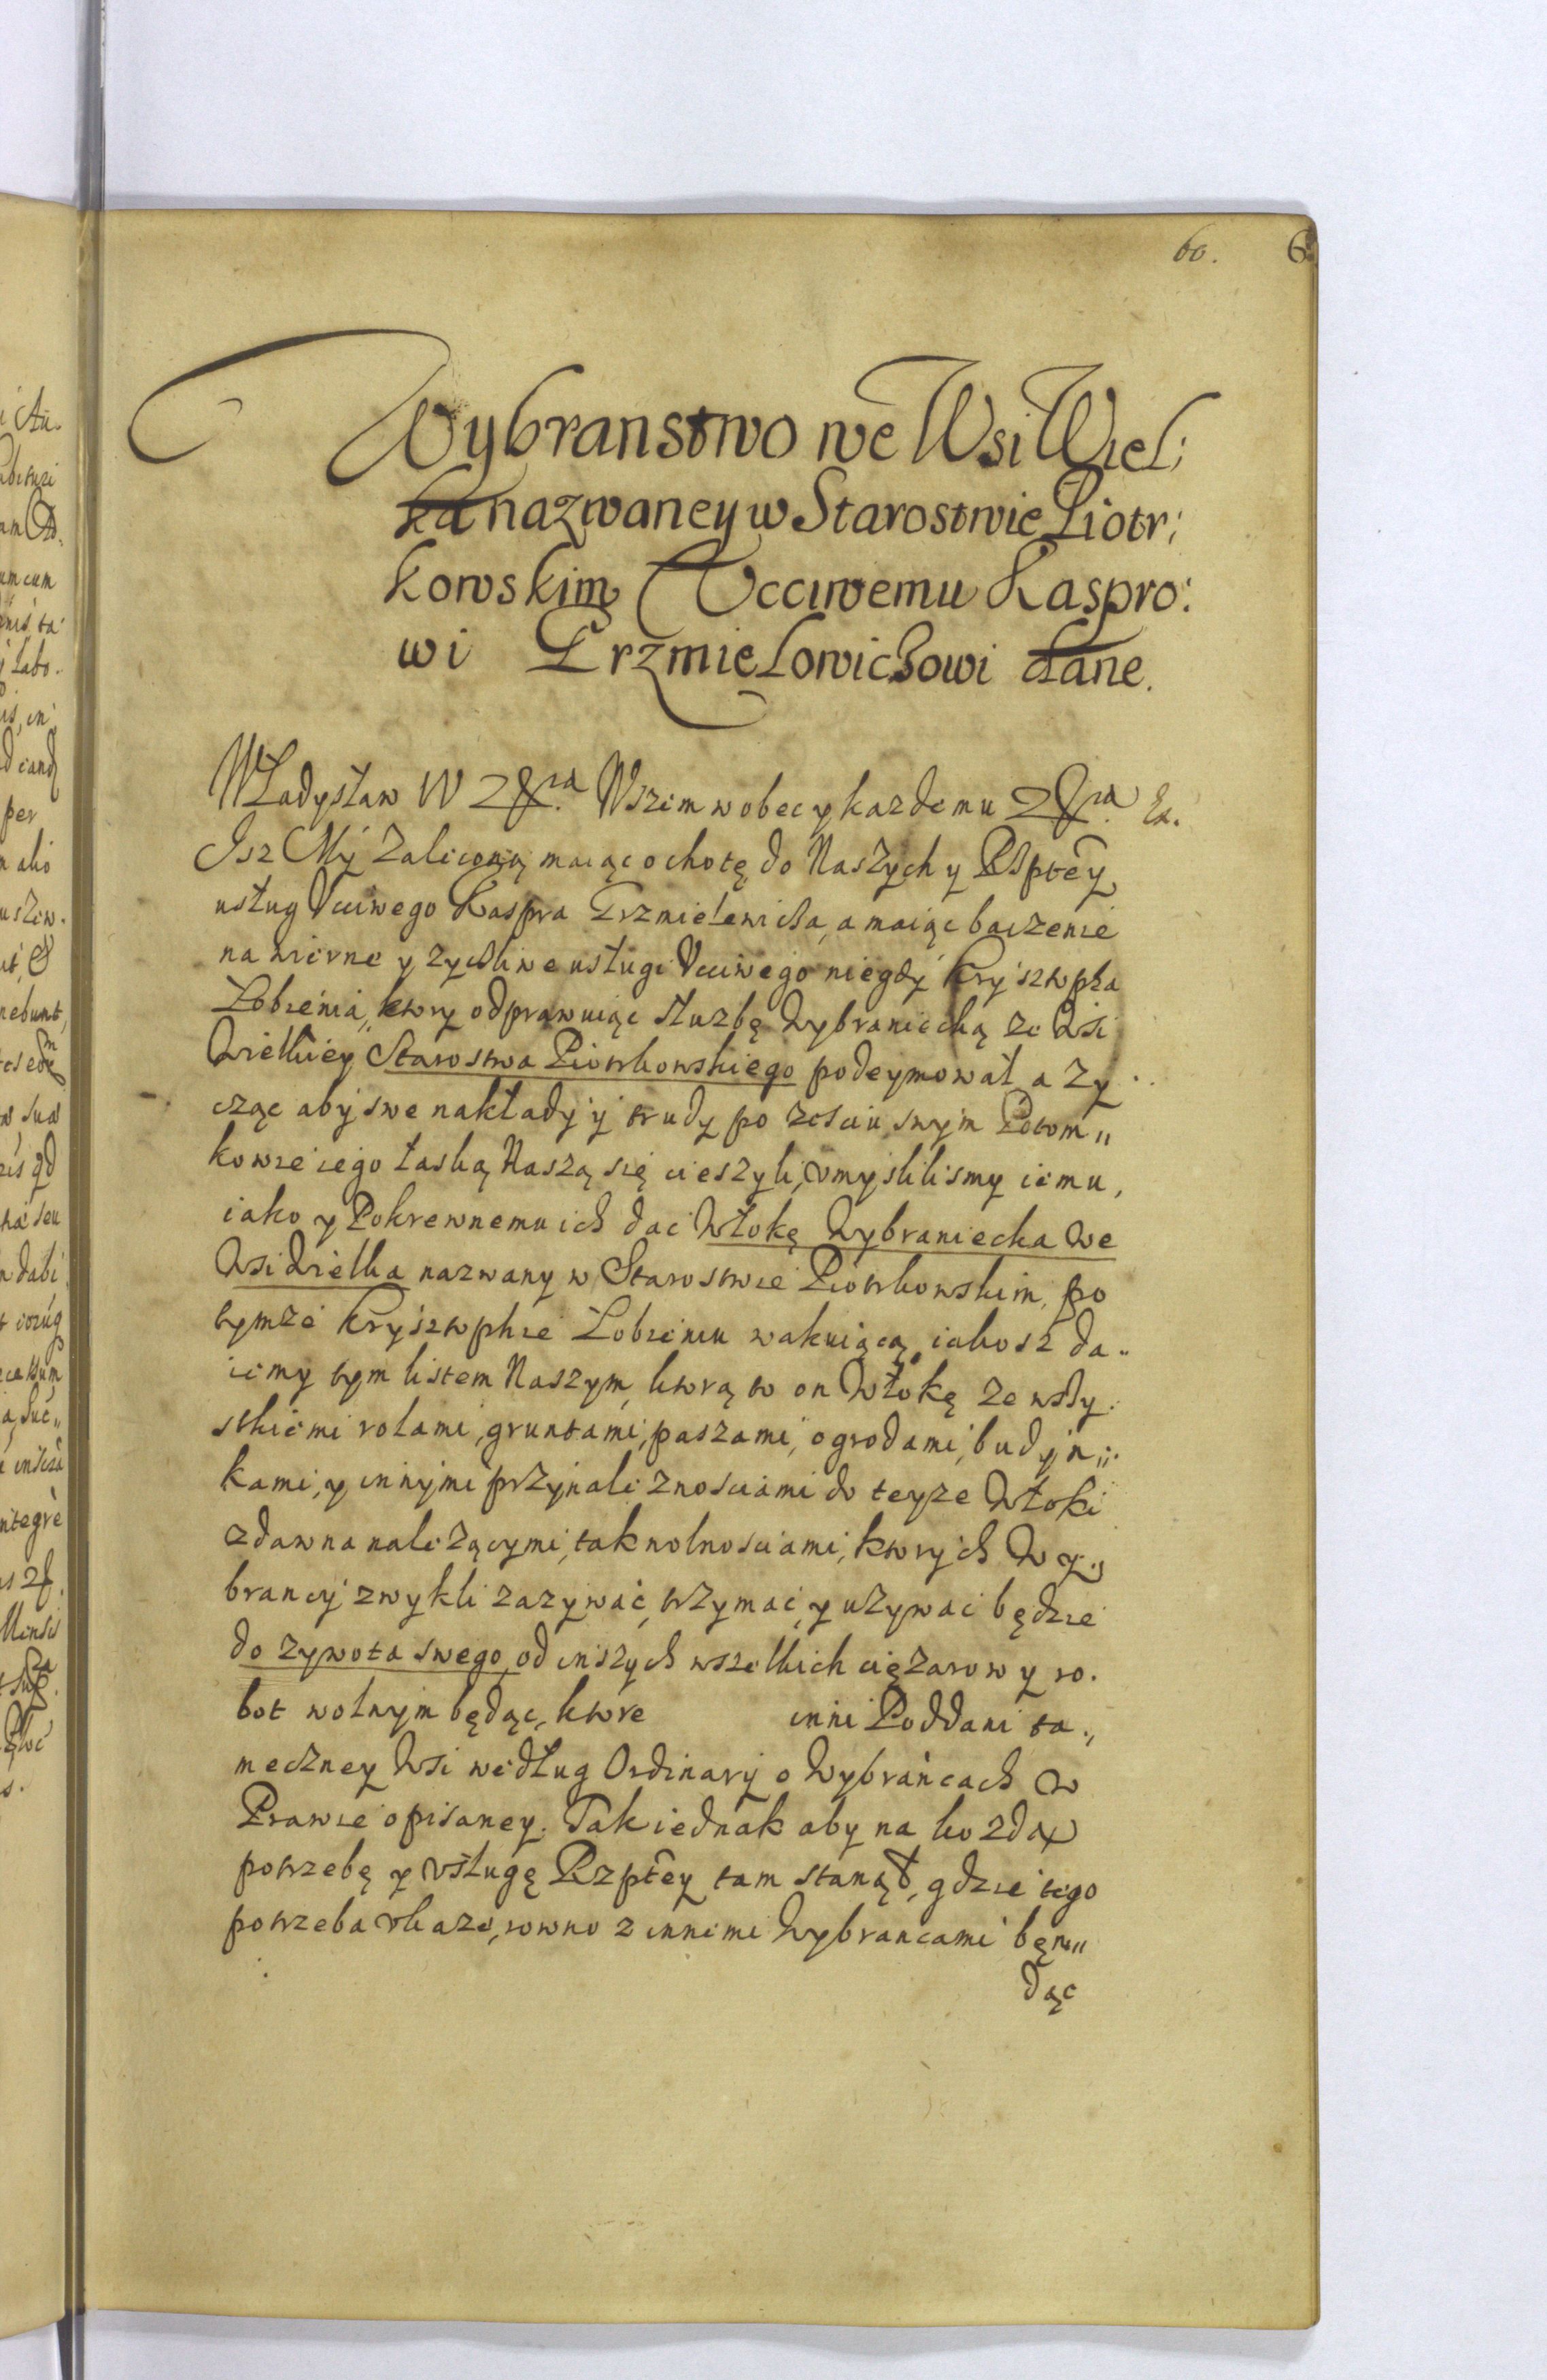 60.
Wybranstwo we Wsi Wiel:
ka nazwaney w Starostwie Piotr:
kowskim Uccıwemu Kaspro:
wi Trzmielowichowi dane.
Władysław IV Z &ra. Wszem wobec y kazdemu Z &ra. Ea.
Isz My Zaliconą maiąc ochotę do Naszych y Rzptey
usług Vcciwego Kaspra Trzmielewicha, a maiąc baczenie
na wierne y zyczliwe usługi Vcciwego niegdy Krysztopha
Łobzenia, ktory odprawuiąc służbę Wybraniecką ze Wsi
Wielkiey Starostwa Piotrkowskiego podeymował a zy
cząc aby swe nakłady y trudy po ześciu swym Potom„
kowie iego łaską Naszą się cieszyli, vmyslilismy iemu,
iako y Pokrewnemu ich dac Włokę Wybraniecka We
Wsi Wielka nazwany w Starostwie Piotrkowskim, po
tymze Krysztophie Łobzeniu wakuiącą, iakosz da„
iemy tym listem Naszym, ktorą to on Włokę ze wszy.
stkiemi rolami, gruntami, paszami, ogrodami, budyn„
kami, y innymi przynaleznosciami do teyze Włoki
zdawna nalezącymi, tak wolnosciami, ktorych Wy„
brancy zwykli zazywać, trzymać, y uzywać będzie
do zywota swego, od inszych wszelkich cięzarow y ro.
bot wolnym będąc, ktore inni Poddani ta„
meczney Wsi według Ordinary o Wybrańcach w
Prawie opisaney. Tak iednak aby na kozdą
potrzebę y vsługę Rzptey tam stanął, gdzie tego
potrzeba vkaze, rowno z innemi Wybrancami bęn„
dąc